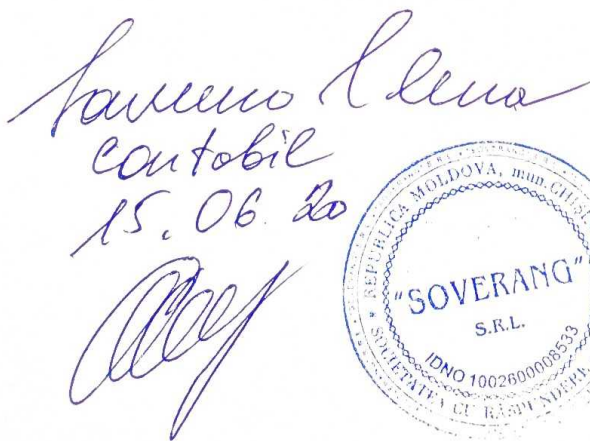 Elena
contabil
15.06.20
REPUBLICA MOLDOVA, mun. CHIȘI
"SOVERANG"
S.R.L.
IDNO 1002600008533
SOCIETATEA CU RĂSPUNDERE